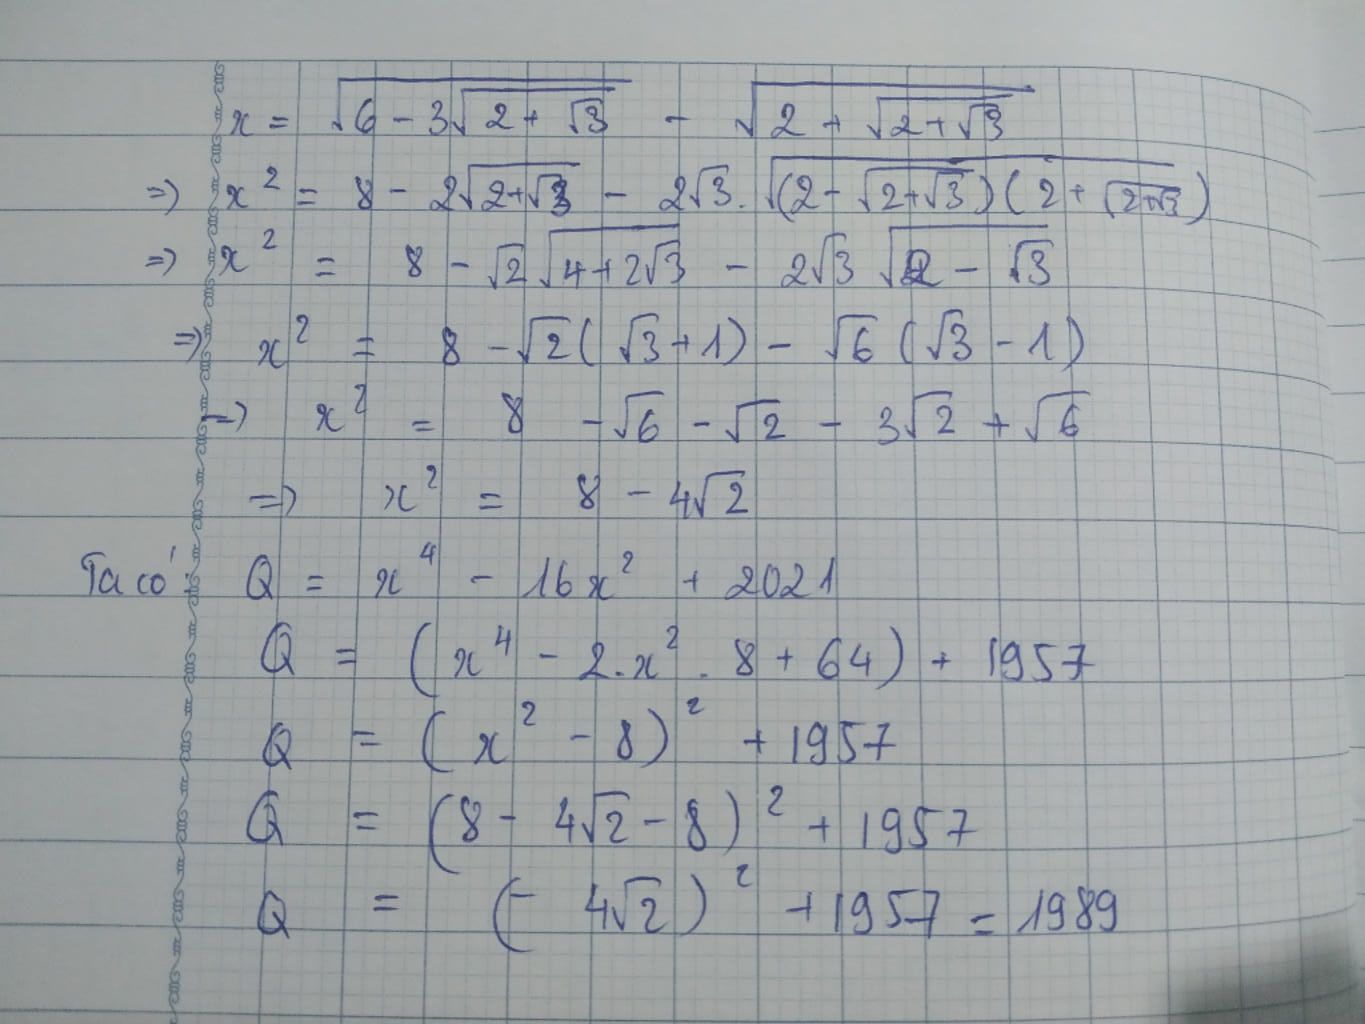 x = √(6 - 3√(2 + √3)) - √(2 + √(2+√3))
=> x² = 8 - 2√(2+√3) - 2√3 . √((2 - √(2+√3))(2 + √(2+√3)))
=> x² = 8 - √2 √(4+2√3) - 2√3 √(2 - √3)
=> x² = 8 - √2(√3+1) - √6(√3 - 1)
=> x² = 8 - √6 - √2 - 3√2 + √6
=> x² = 8 - 4√2
Ta có: Q = x⁴ - 16x² + 2021
Q = (x⁴ - 2.x² . 8 + 64) + 1957
Q = (x² - 8)² + 1957
Q = (8 - 4√2 - 8)² + 1957
Q = (- 4√2)² + 1957 = 1989